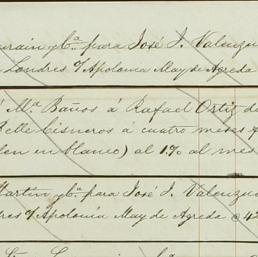 y Cª. para José I. Valenzue
Londres %Apolonia May de Agreda
Mª. Baños á Rafael Ortiz de
Belle Cisneros á cuatro meses
en blanco) al 1% al mes
Martin y Cª. para José I. Valenzue
res %Apolonia May de Agreda @ 42